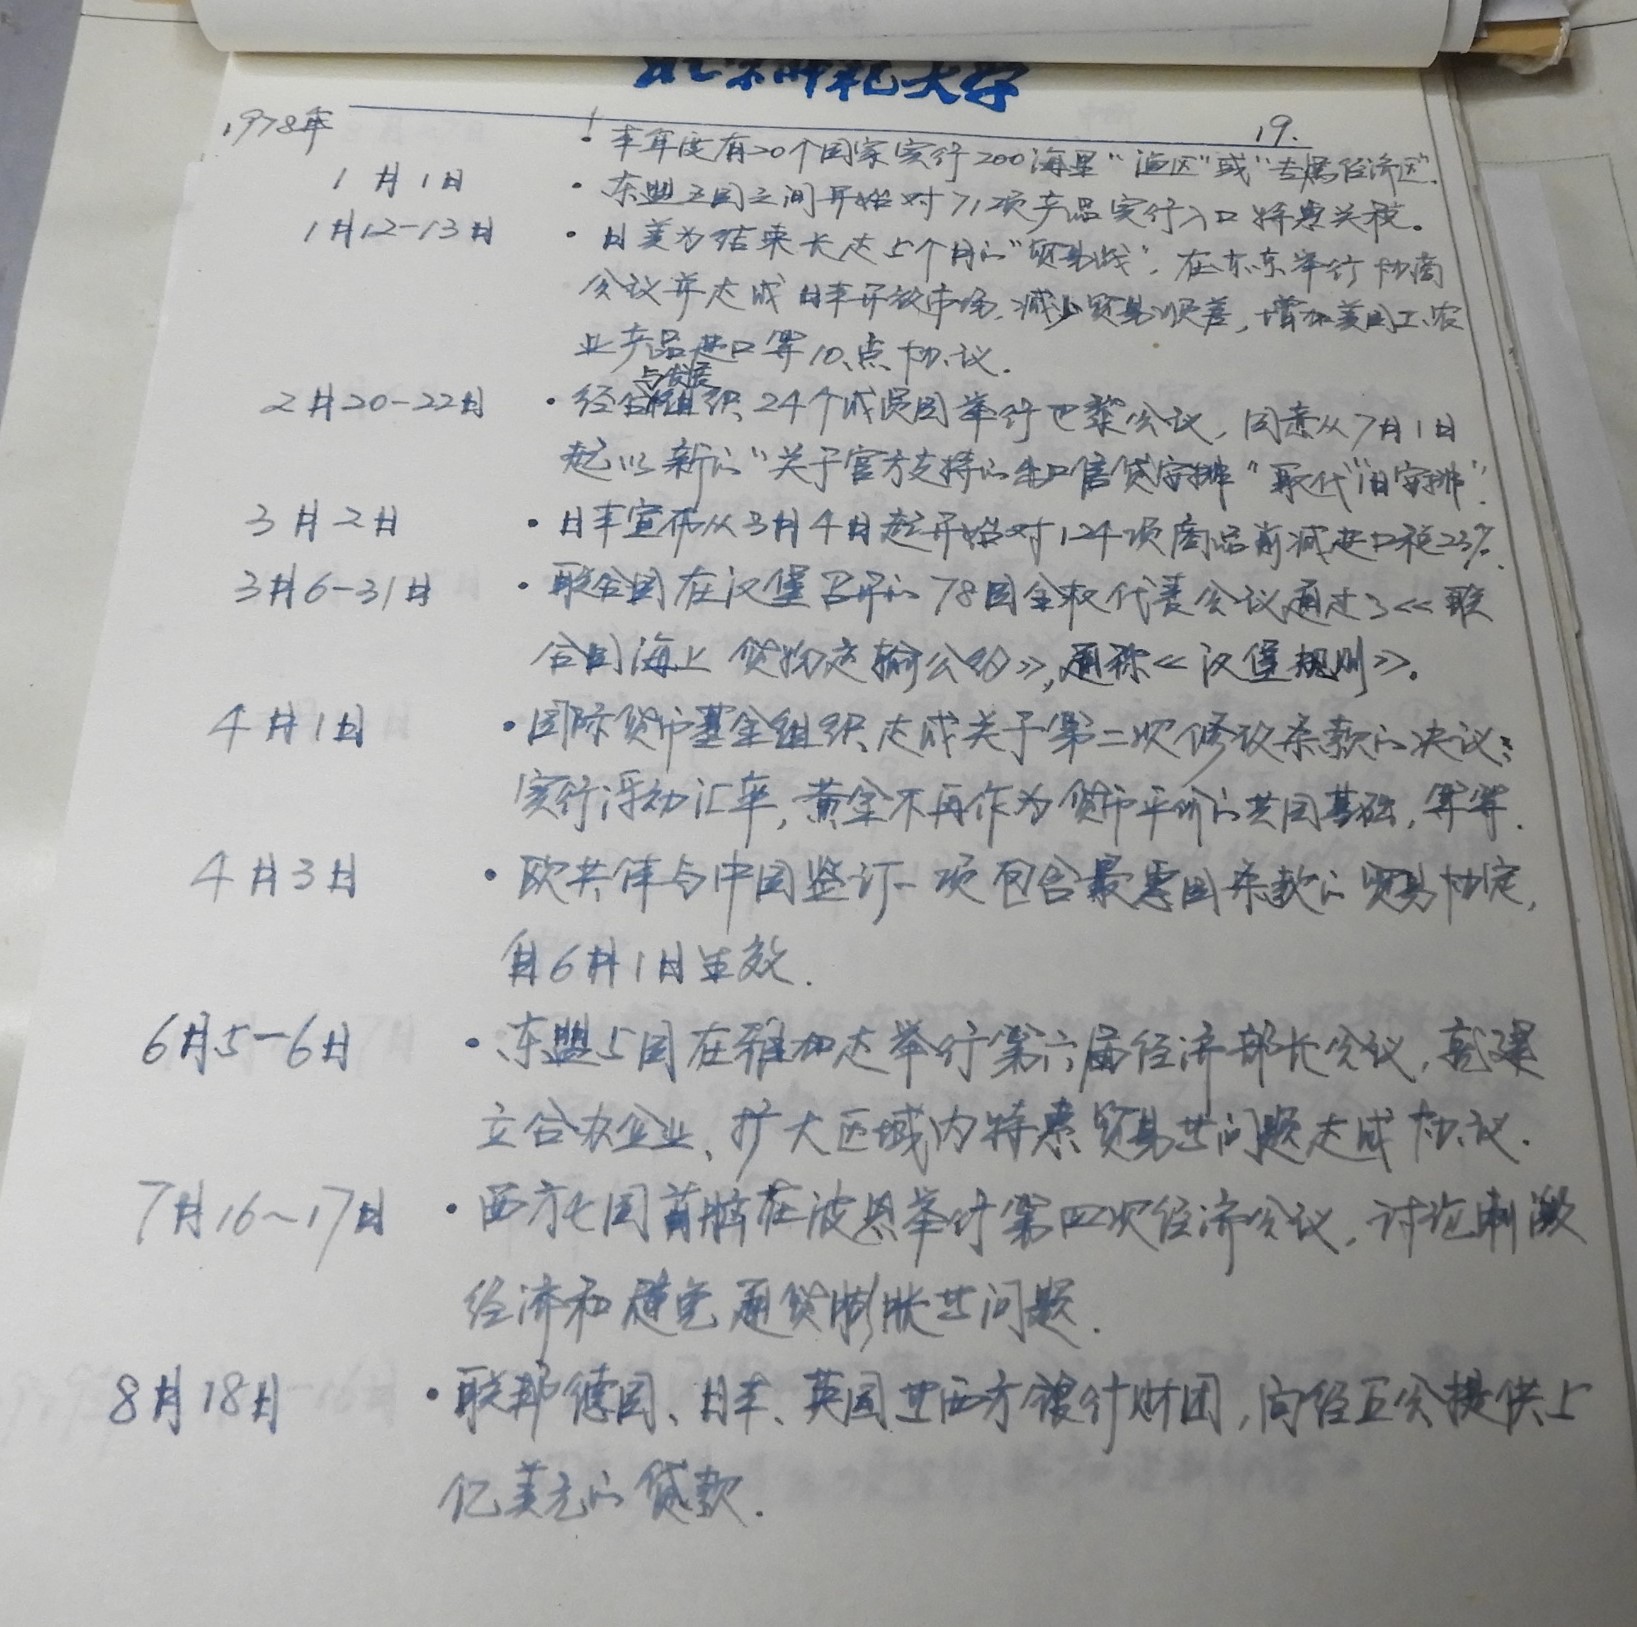 北京师范大学
19.
1978年 · 本年度有20个国家实行200海里"渔区"或"专属经济区".
1月1日 · 东盟五国之间开始对71项产品实行入口特惠关税。
1月12-13日 · 日美为结束长达5个月的"贸易战",在东京举行协商
会议并达成日本开放市场,减少贸易顺差,增加美国工农
业产品进口等10点协议.
与发展
2月20-22日 · 经合组织24个成员国举行巴黎会议,同意从7月1日
起以新的"关于官方支持的出口信贷安排"取代"旧安排".
3月2日 · 日本宣布从3月4日起开始对124项商品削减进口税23%.
3月6-31日 · 联合国在汉堡召开的78国全权代表会议通过了《联
合国海上货物运输公约》,通称《汉堡规则》。
4月1日 · 国际货币基金组织达成关于第二次修改条款的决议:
实行浮动汇率,黄金不再作为货币平价的共同基础,等等.
4月3日 · 欧共体与中国签订一项包含最惠国条款的贸易协定,
自6月1日生效.
6月5-6日 · 东盟5国在雅加达举行第六届经济部长会议,就建
立合办企业、扩大区域内特惠贸易等问题达成协议.
7月16~17日 · 西方七国首脑在波恩举行第四次经济会议,讨论刺激
经济和避免通货膨胀等问题.
8月18日 · 联邦德国、日本、英国等西方银行财团,向经互会提供5
亿美元的贷款.